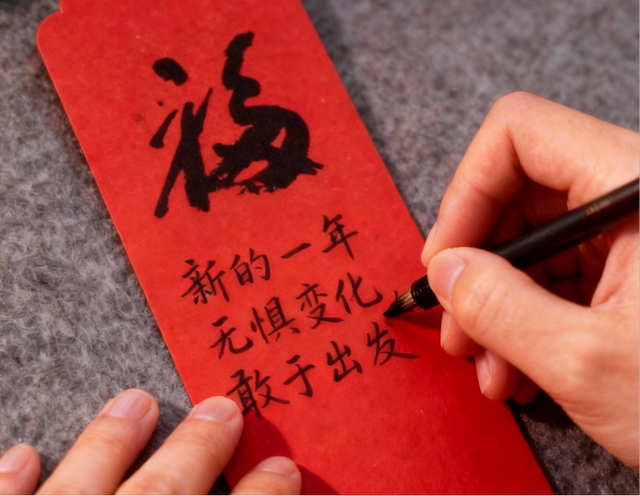 福
新的一年
无惧变化
敢于出发